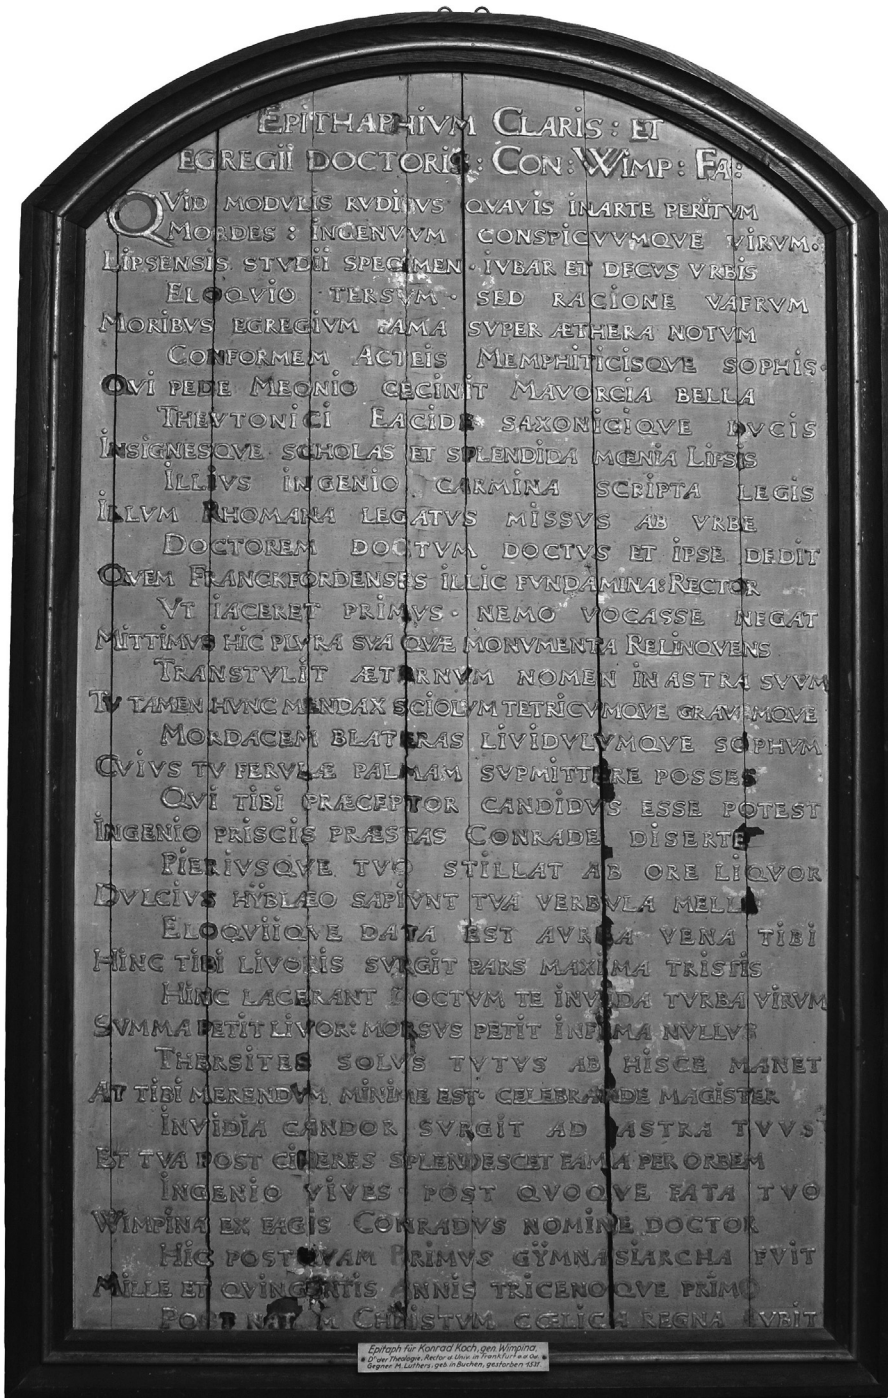 EPITHAPHIVM CLARIS: ET
EGREGII DOCTORIS: CON: WIMP: FA:
QVID MODVLIS RVDIBVS QVAVIS INARTE PERITVM
MORDES: INGENVVM CONSPICVVMQVE VIRVM.
LIPSENSIS STVDII SPECIMEN. IVBAR ET DECVS VRBIS
ELOQVIO TERSVM. SED RACIONE VAFRVM
MORIBVS EGREGIVM FAMA SVPER ÆTHERA NOTVM
CONFORMEM ACTEIS MEMPHITICISQVE SOPHIS.
QVI PEDE MEONIO CECINIT MAVORCIA BELLA
THEVTONICI EACIDE SAXONIGIQVE DVCIS
INSIGNESQVE SCHOLAS ET SPLENDIDA MŒNIA LIPSIS
ILLIVS INGENIO. CARMINA SCRIPTA LEGIS
ILLVM RHOMANA LEGATVS MISSVS AB VRBE
DOCTOREM DOCTVM DOCTVS ET IPSE DEDIT
QVEM FRANCKFORDENSES ILLIC FVNDAMINA: RECTOR
VT IACERET PRIMVS. NEMO VOCASSE NEGAT
MITTIMVS HIC PLVRA SVA QVÆ MONVMENTA RELINQVENS
TRANSTVLIT ÆTERNVM NOMEN IN ASTRA SVVM
TV TAMEN HVNC MENDAX SCIOLVM TETRICVMQVE GRAVEMQVE
MORDACEM BLATERAS LIVIDVLVMQVE SOPHVM
CVIVS TV FERVLÆ PALMAM SVPMITTERE POSSES
QVI TIBI PRÆCEPTOR CANDIDVS ESSE POTEST
INGENIO PRISCIS PRÆSTAS CONRADE DISERTE
PIERIVSQVE TVO STILLAT AB ORE LIQVOR
DVLCIVS HŸBLÆO SAPIVNT TVA VERBVLA MELLE
ELOQVIIQVE DATA EST AVREA VENA TIBI
HINC TIBI LIVORIS SVRGIT PARS MAXIMA TRISTIS
HINC LACERANT DOCTVM TE INVIDA TVRBA VIRVM
SVMMA PETIT LIVOR: MORSVS PETIT INFIMA NVLLVS
THERSITES SOLVS TVTVS AB HISCE MANET
AT TIBI MERENDVM MINIME EST. CELEBRANDE MAGISTER
INVIDIA CANDOR SVRGIT AD ASTRA TVVS
ET TVA POST CINERES SPLENDESCET FAMA PER ORBEM
INGENIO VIVES POST QVOQVE FATA TVO
WIMPINA EX FAGIS CONRADVS NOMINE DOCTOR
HIC POSTQVAM PRIMVS GŸMNASIARCHA FVIT
MILLE ET QVINGENTIS ANNIS TRICENOQVE PRIMO
POST NATVM CHRISTVM CŒLICA REGNA SVBIT
Epitaph für Konrad Koch, gen. Wimpina,
Dr der Theologie, Rector a. Univ. in Frankfurt a.d. Od.
Gegner M. Luthers, geb. in Buchen, gestorben 1531.